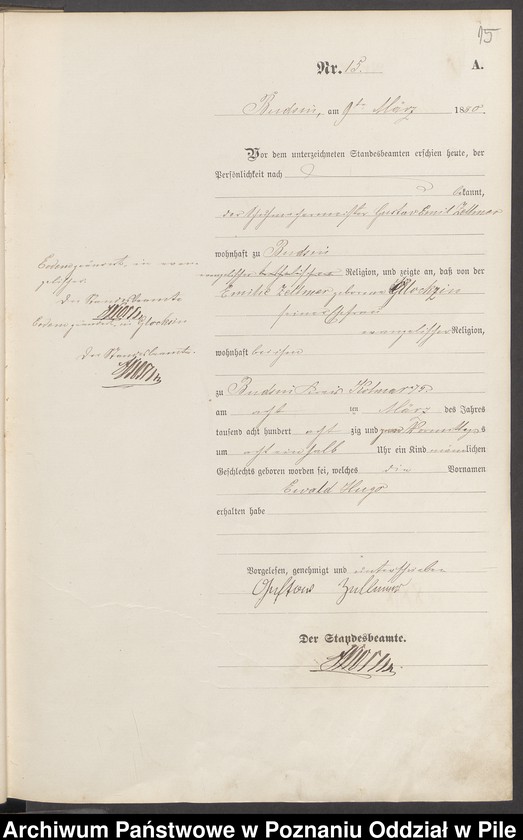 15
Nr. 15. A.
Budsin, am 9ten März 1880.
Vor dem unterzeichneten Standesbeamten erschien heute, der
Persönlichkeit nach
bekannt,
der Gustav Emil Zellmer
wohnhaft zu Budsin
evangelischer Religion, und zeigte an, daß von der
Emilie Zellmer geborene Glockzin
seiner Ehefrau
evangelischer Religion,
wohnhaft bei ihm
zu Budsin Kreis Kolmar i/P.
am acht ten März des Jahres
tausend acht hundert acht zig und Vormittags
um acht einhalb Uhr ein Kind männlichen
Geschlechts geboren worden sei, welches die Vornamen
Ewald Hugo
erhalten habe
Vorgelesen, genehmigt und unterschrieben
Gustav Zellmer
Der Standesbeamte.
in evan
gelischer
Der Standesbeamte
in Glockzin
Der Standesbeamte.
Archiwum Państwowe w Poznaniu Oddział w Pile